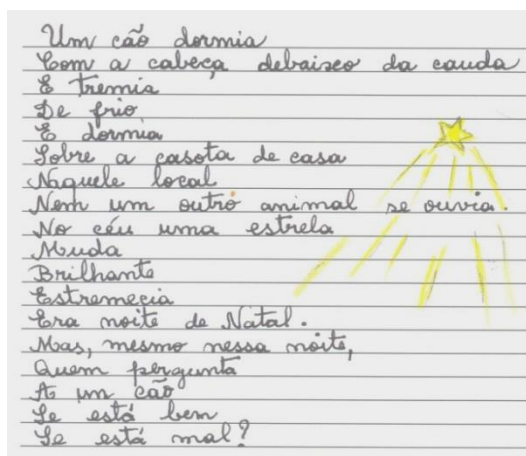 Um cão dormia
Com a cabeça debaixo da cauda
E tremia
De frio
E dormia
Sobre a casota de casa
Naquele local
Nem um outro animal se ouvia.
No céu uma estrela
Muda
Brilhante
Estremecia
Era noite de Natal.
Mas, mesmo nessa noite,
Quem pergunta
A um cão
Se está bem
Se está mal?